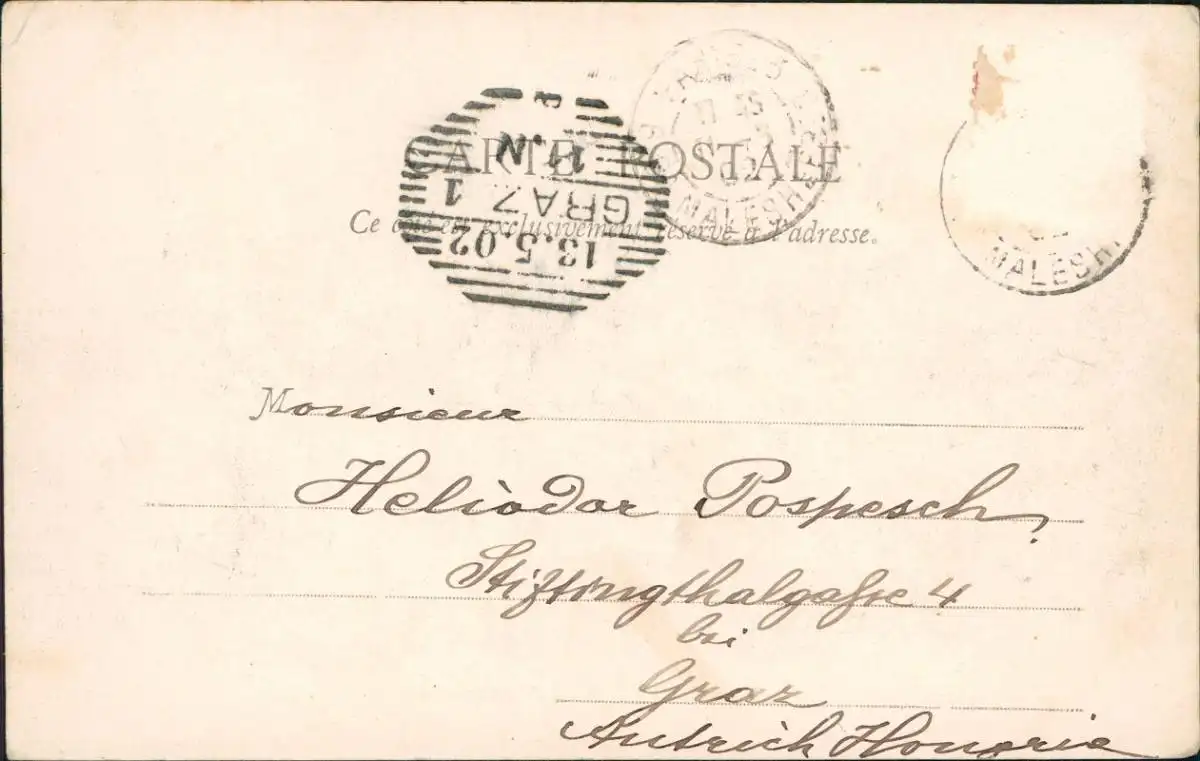 CARTE POSTALE
Ce côté est exclusivement réservé à l'adresse.
13.5.02
GRAZ 1
11.N
MALESHE
MALESH
Monsieur
Heliodor Pospesch,
Stiftingthalgasse 4
bei
Graz
Autrich Hongrie